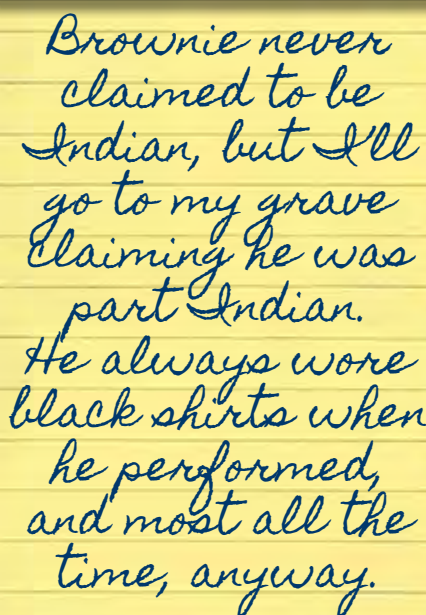 Brownie never
claimed to be
Indian, but I'll
go to my grave
claiming he was
part Indian.
He always wore
black shirts when
he performed,
and most all the
time, anyway.